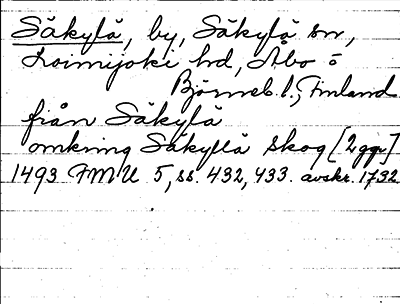 Säkylä, by, Säkylä sn,
Loimijoki hd, Åbo o
Björneb. l., Finland
från Säkylä
omkring Säkyllä skog [2 ggr]
1493 FMU 5, ss. 432, 433. avskr. 1732